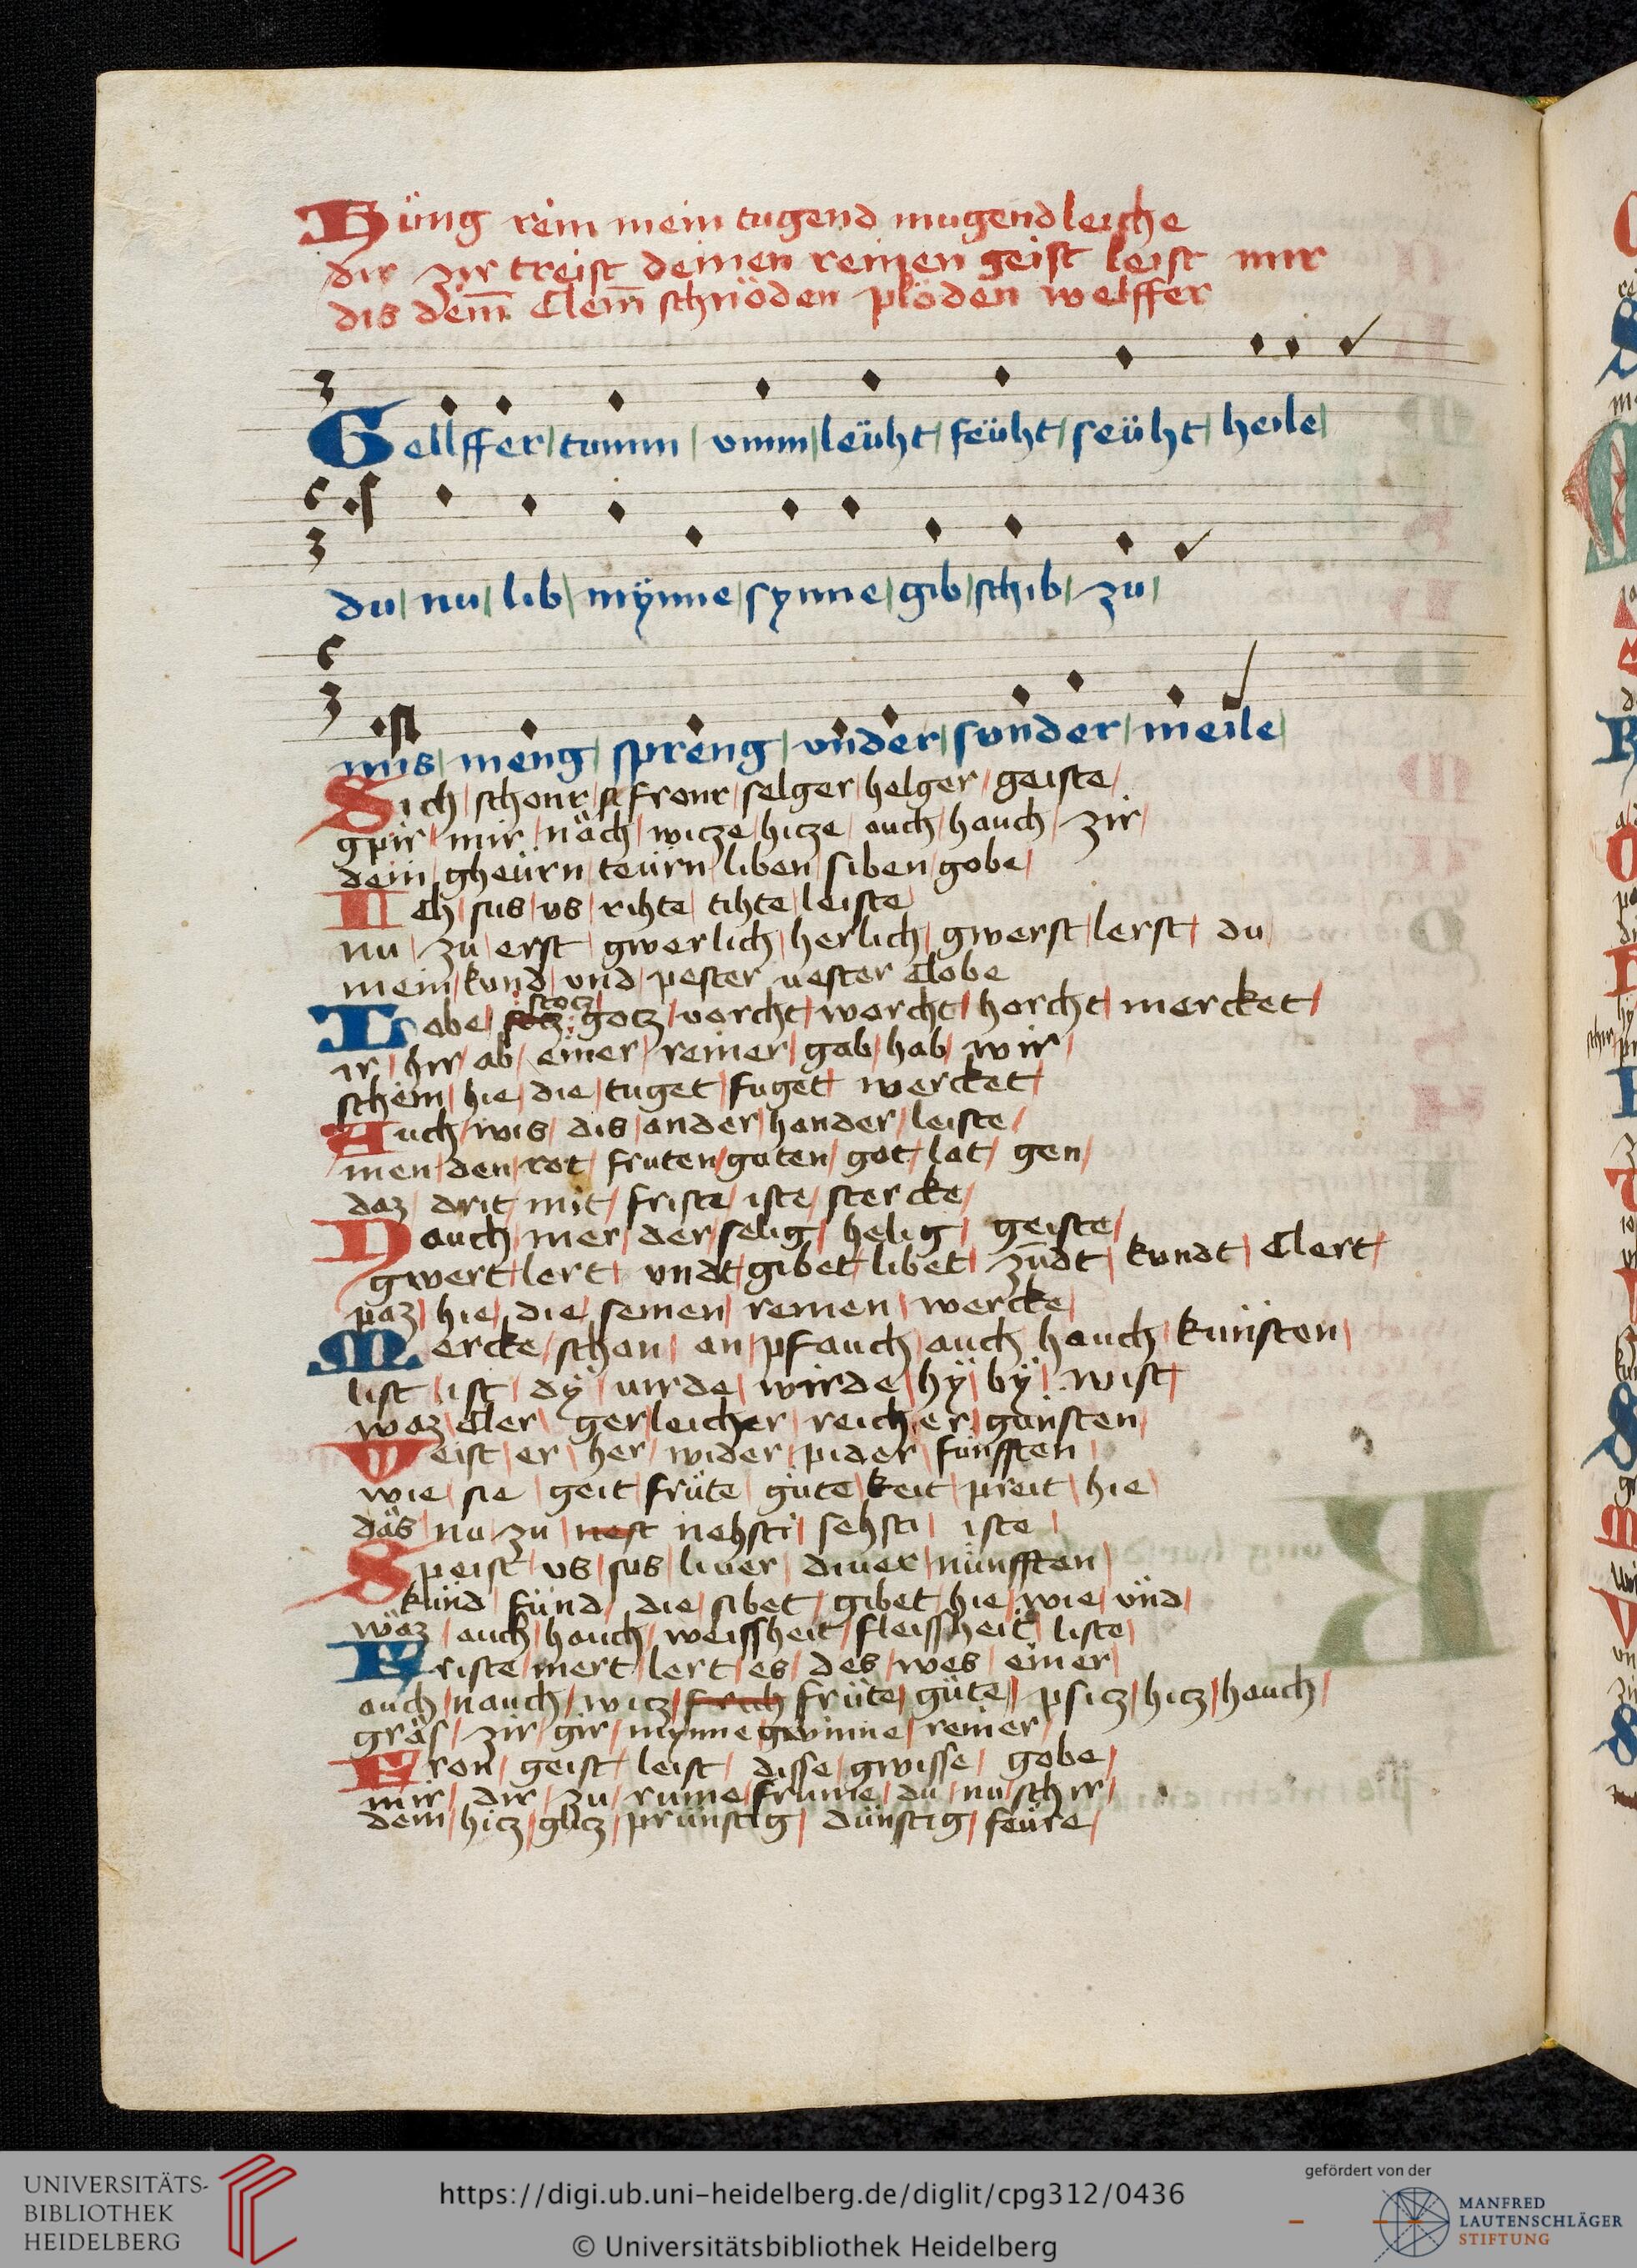 Hüng rein mein tugend mugend leiche
dir zir treist deinen reinen geist leist mir
dis dem̄ Clem̄ schnöden plöden welffer
Gellffer| tumm| vmm| leüht| feüht| seüht| heile|
du| nu| lib| mÿnne| synne| gib| schib| zu|
mis| meng| spreng| vnder| sunder| meile|
Sich| schonr| fronr| selger| helger| geiste/
gpir| mir| näch| witze| hitze| auch| hauch| zir|
dein| gheürn| teürn| liben| siben| gobe|
Ich| sus| vs| rihte| tihte| leiste
nu| zu| erst| gwerlich| herlich| gwerst| lerst| du|
mein| kund| vnd| pester| uester Clobe
Lobe| stotz gotz| vorcht| worcht| horcht| mercket|
ir| hir| ab| einer| reiner| gab| hab| wir|
schein| hie| die| tuget| fuget| wercket|
Auch| wis| dis| ander| hander| leiste/
men| den| rot| fruten| guten| got| lat| gen|
daz| drit| mit| friste| iste| stercke|
Hauch| mer| der| selig| helig| geiste|
gwert| lert| vndt| gibet| libet| zundt| kundt| Clert|
paz| hie| die| seinen| reinen| wercke|
Mercke| schan| an| pfauch| auch| hauch| künsten|
list| ist| dÿ| uirde| wirde| hÿ| bÿ| wist|
waz| Cler| gerleicher| reicher| günsten|
Weist| er| her| wider| pider| fünfften|
wie| sie| geit| früte| güte| keit| preit| hie|
däs| nu| zu| nest nehsti| sehsti| iste|
Speist| vs| sus| liuer| diuer| nünfften|
künd| fünd| die| sibet| gibet| hie| wie| vnd|
wäz| auch| hauch| weissheit| fleissheit| liste|
Friste| mert| lert| es| des| wes| einer|
auch| nauch| witz| früte| güte| psitz| hitz| hauch|
gräs| zir| gir| mynne| gwinne| reiner|
Fron| geist| leist| disse| gwisse| gobe|
mir| dir| zu| rume| frume| du| nu| schir|
dein| hitz| glitz| prünstig| dünstig| feüre|
UNIVERSITÄTS-
BIBLIOTHEK
HEIDELBERG
https://digi.ub.uni-heidelberg.de/diglit/cpg312/0436
© Universitätsbibliothek Heidelberg
gefördert von der
MANFRED
LAUTENSCHLÄGER
STIFTUNG